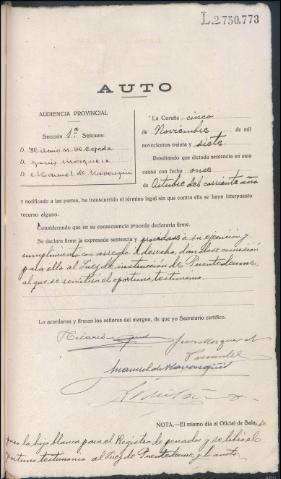 L.2750.773
AUTO
AUDIENCIA PROVINCIAL
Sección 1ª Señores:
D. Hilario N. de Cepeda
D. Jesús Marquez
D. Manuel de
La Coruña cinco
de Noviembre de mil
novecientos treinta y siete
Resultando que dictada sentencia en esta
causa con fecha once
Octubre del corriente año
y notificada a las partes, ha transcurrido el término legal sin que contra ella se haya interpuesto
recurso alguno.
Considerando que en su consecuencia procede declararla firme.
Se declara firme la expresada sentencia y procédase a su ejecución y
cumplimiento con arreglo a derecho, dándose comisión
para ello al Juez de instrucción de Puentedeume,
al que se remitirá el oportuno testimonio.
Lo acordaron y firman los señores del margen, de que yo Secretario certifico.
Hilario
Manuel de
NOTA.—El mismo día al Oficial de Sala,
la hoja blanca para el Registro de penados y se libró el
oportuno testimonio al Juez de Puentedeume